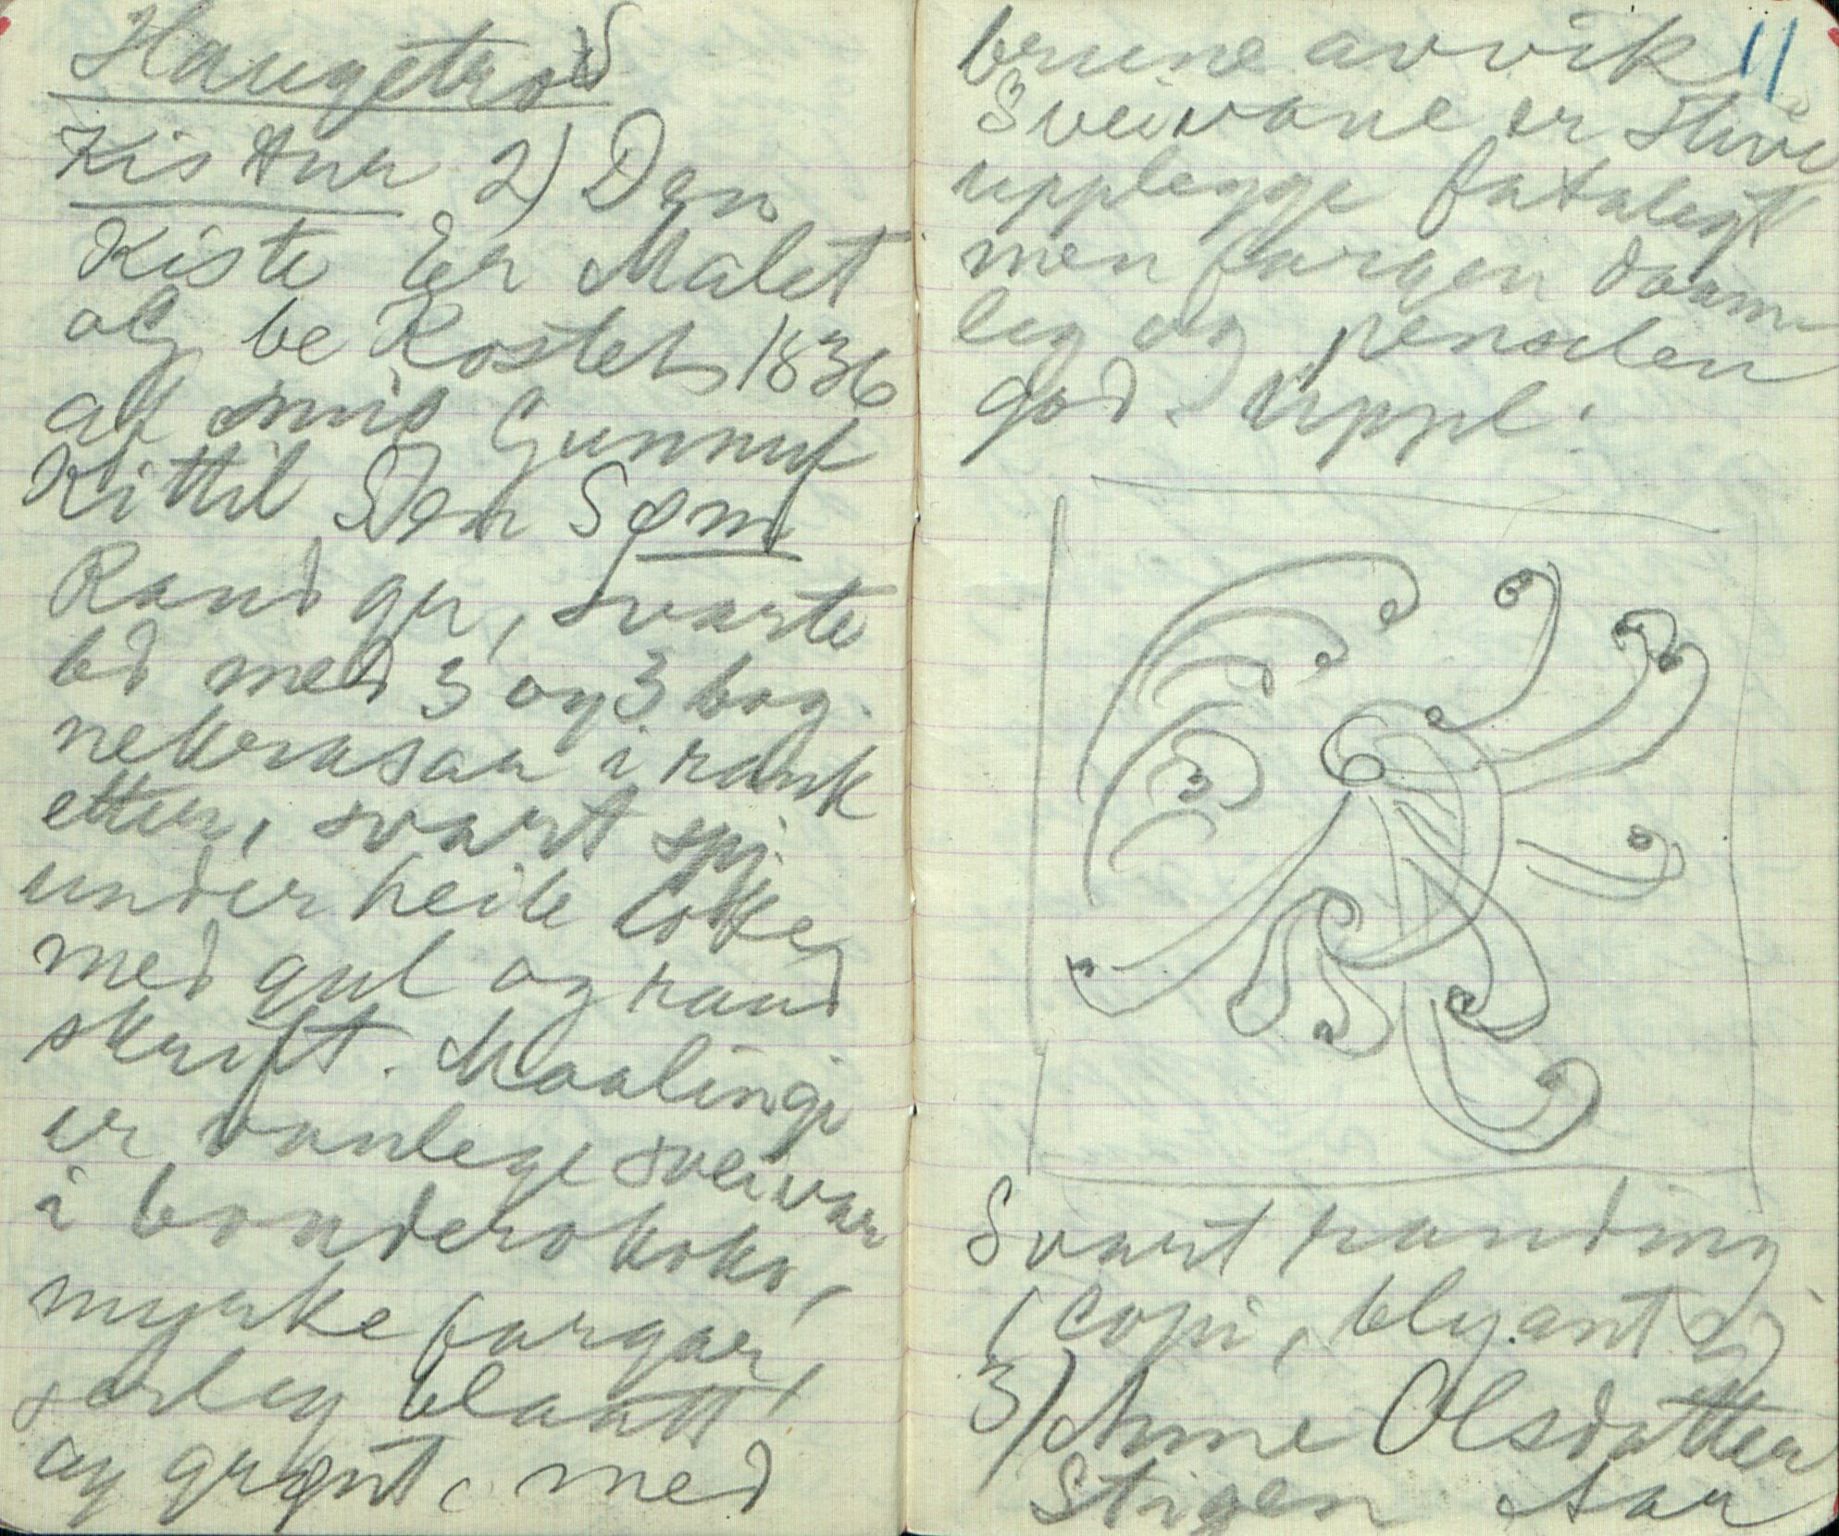 Haugetrod
Kistur 2) Den
Kiste Er Malet
og be Kostet 1836
af mid Gunnuf
Kittil Søn Sømd
Raud gr, svarte
bd med 3 og 3 bog.
nekrusaa i rank
etter, svart spj.
under heile loket
med gul og raud
skrift. Maalingi
er vanlege sveivar
i bonderokoko,
myrke fargar,
særleg blaatt
og grønt, med
11
brune avvik.
Sveivane er stive
upplegge fatalegt
men fargen daam
leg og penselen
god. Uppl.
Svart randing
(copi, blyant og)
3) Anne Olsdatter
Stigen Aar